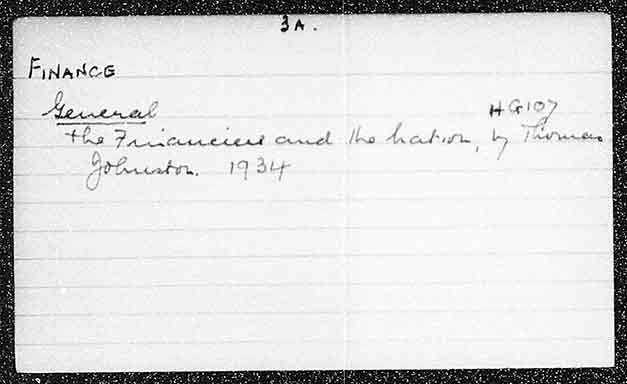 3A.
FINANCE
General HG107
The Financiers and the Nation, by Thomas
Johnston. 1934